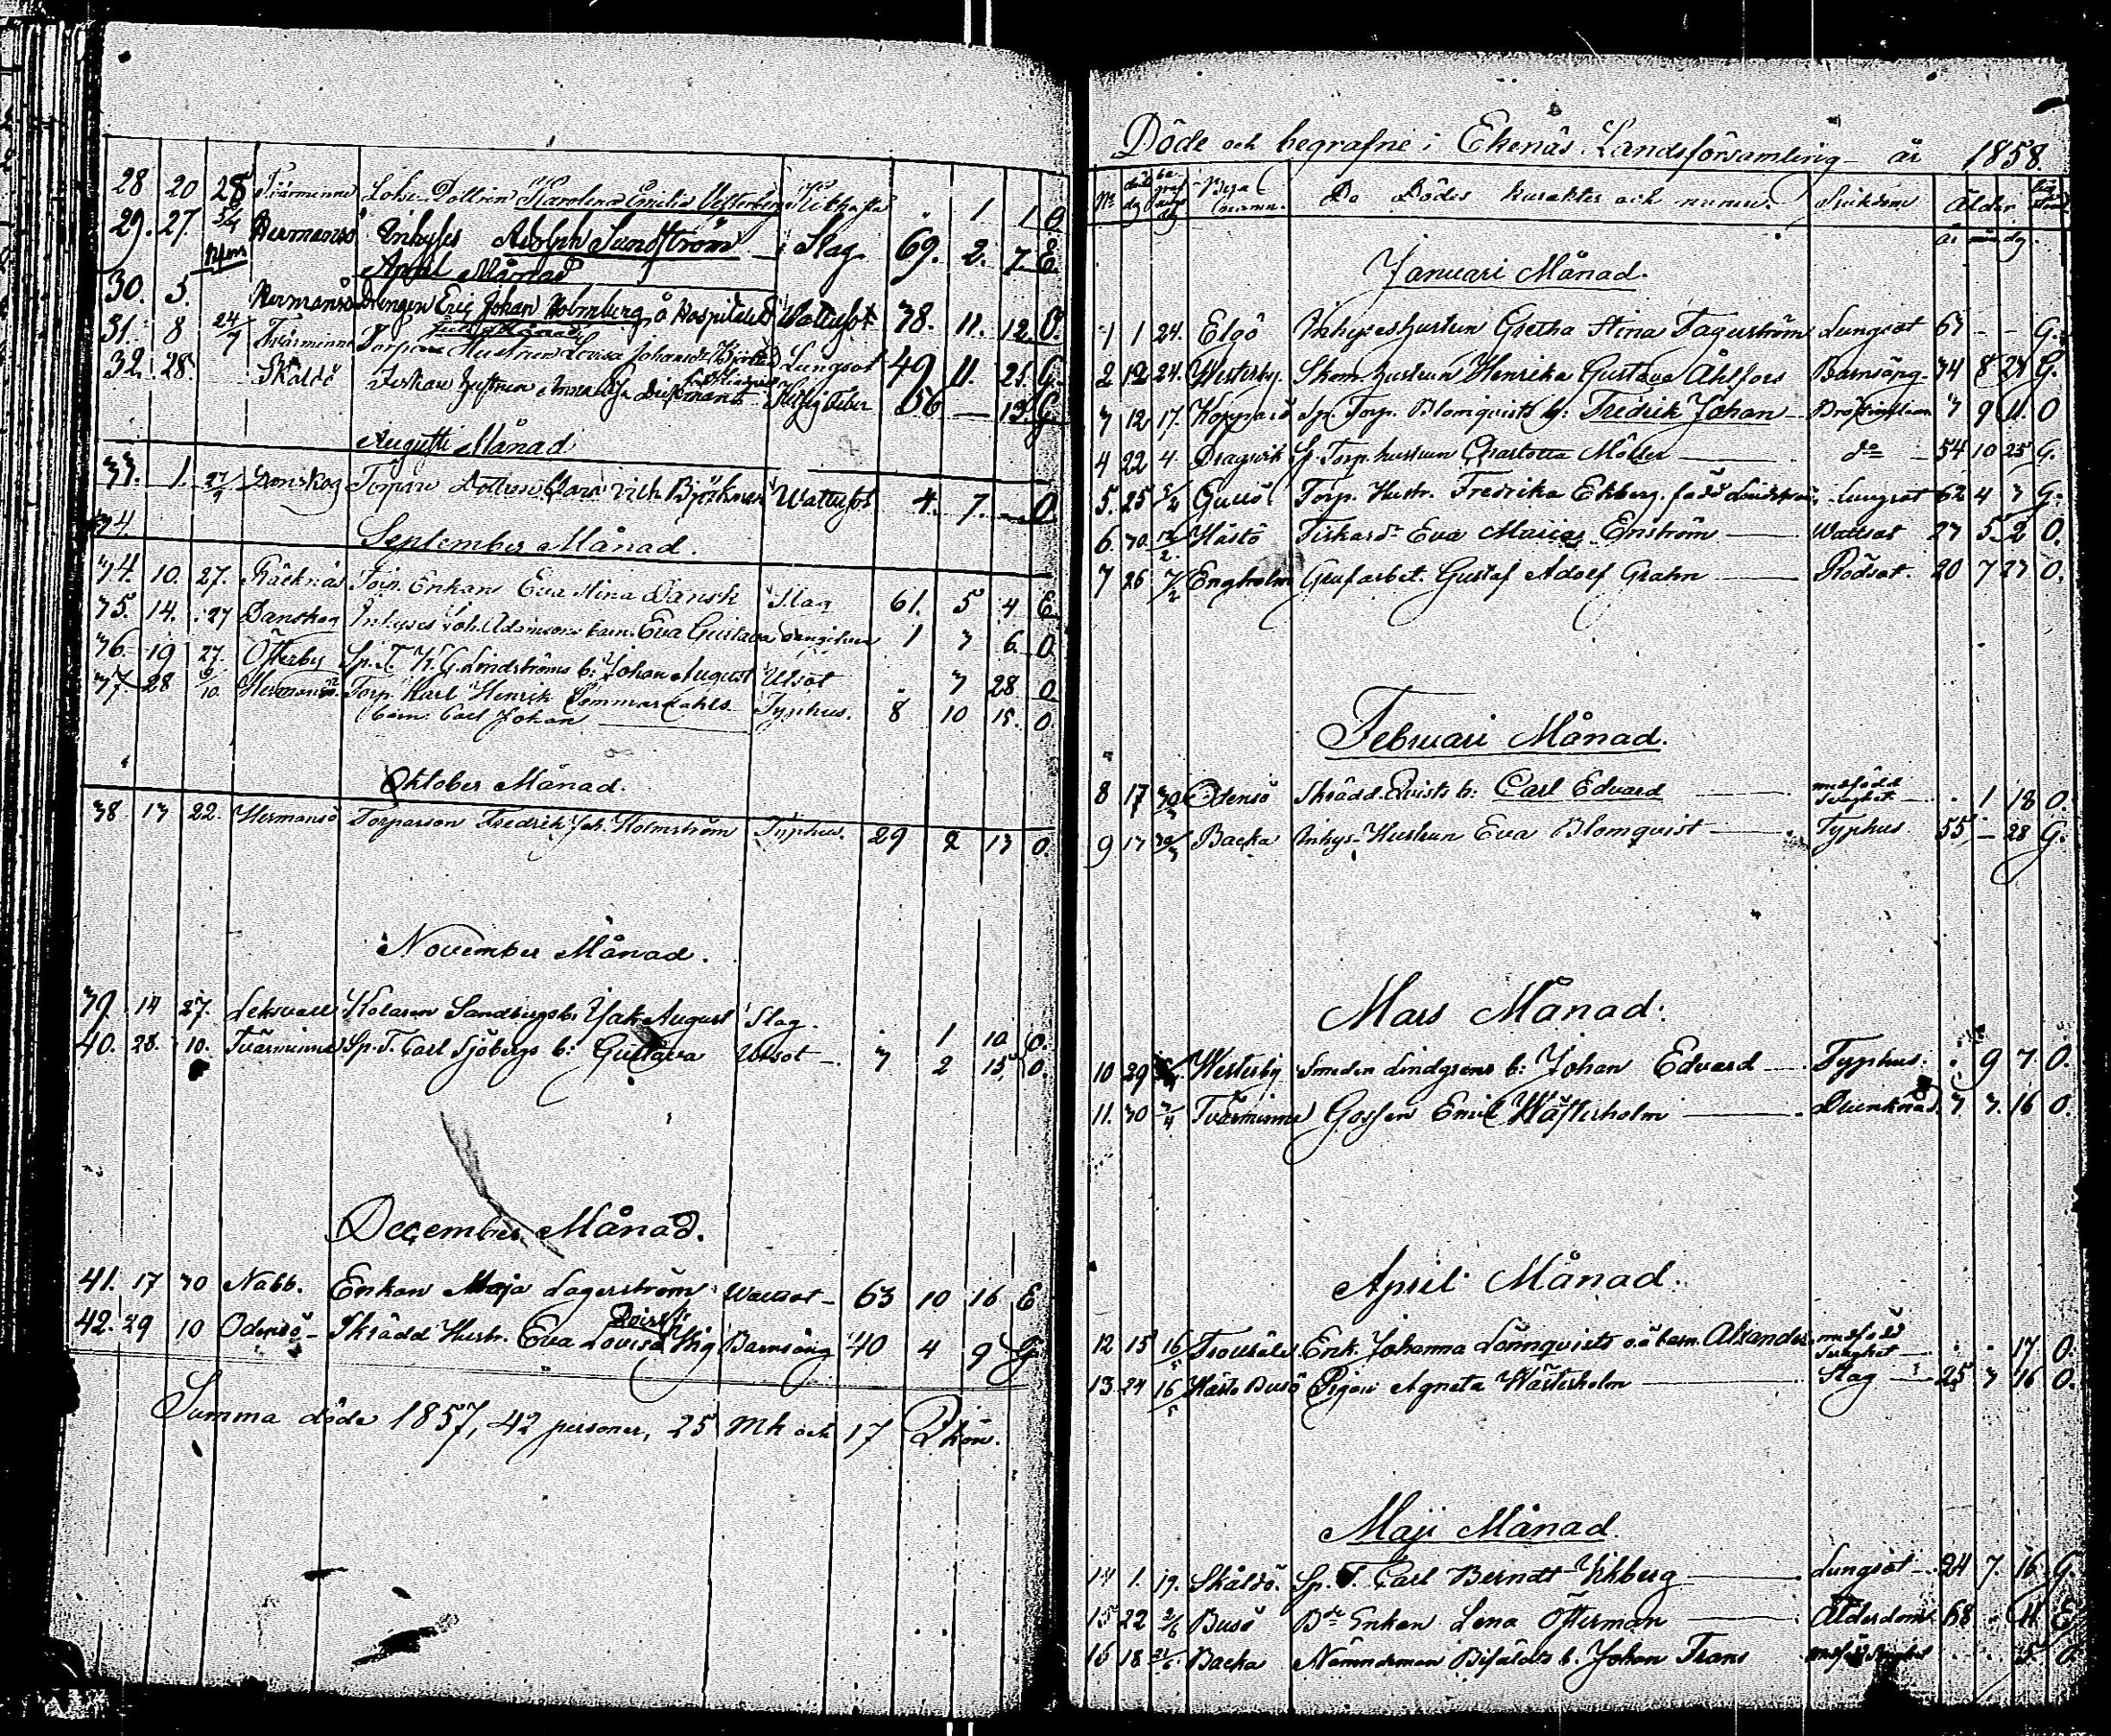 28 20 28 Tvärminne Lotse Dottren Karolina Emilia Vesterberg 1 1 O.
29. 27. 5/4 Hermansö Inhyses Adolph Sundström Slag 69. 2. 7. E.
April Månad
30. 5. Hermansö Drengen Eric Johan Holmberg å Hospitalet Wattusot 38. 11. 12. O.
Juli Månad
31. 8 24/7 Tvärminne Torpare Hustrun Lovisa Johansdr Lungsot 49 11. 25. G.
32. 28. Skåldö Fiskare Hustrun Anna feber 56 — 13. G.
Augusti Månad
33. 1. 27/9 Torpare Dottren Clara Vilh. Björkman Wattusot 4. 7. — O
34.
September Månad.
34. 10. 27. Räcknäs Enkans Eva Stina Dansk Slag 61. 5 4 E.
35. 14. 27 Danskog Inhyses Joh. Adamsons barn Eva Gustava 1 3 6. O.
36. 19 27. Österby Sp. T. K. G. Lindströms b: Johan August Utsot " 3 28 O
37. 28 9/10. Hermansö Torp. Karl Henrik Sommardahls Typhus. 8 10 15. O.
barn: Carl Johan
Oktober Månad.
38. 13 22. Hermansö Torparson Fredrik Joh. Holmström Typhus. 29 2 13 O.
November Månad.
39. 14 27. Leksvall Kolaren Sandbergs b: Jak August Slag. " 1 10. O.
40. 28. 10. Tvärminne Sp. T. Carl Sjöbergs b: Gustava Utsot — 3 2 15. O.
December Månad.
41. 17 30 Nabb. Enkan Maja Lagerström Wattsot — 63 10 16 E
Qvist
42. 29 10 Odensö — Skrädd Hustr. Eva Lovisa Barnsäng 40 4 9 G.
Summa döde 1857, 42 personer, 25 Mk och 17 Qkön.
Döde och begrafne i Ekenäs Landsförsamling år 1858.
No döds dag begrafnings dag De Dödes karakter och namn. Sjukdom Ålder
år mån. dg.
Januari Månad.
1 1 24. Elgö Inhyseshustrun Gretha Stina Fagerström Lungsot 63 - - G.
2 12 24. Westerby. Skom. hustrun Henrika Gustava Åhlfors Barnsäng 34 8 28 G.
3 12 17. Kopparö Sp. Torp. Blomqvists b: Fredrik Johan 3 9 11. O
4 22 4. Dragsvik Sp. Torp. hustrun Charlotta Möller do 54 10 25 G.
5. 25 5/2 Gullö Torp. Hustr. Fredrika Ekberg. född Lindström Lungsot 62 4 3 G.
6. 30. 12/2. Hästö Fiskardr Eva Maria Enström Wattsot 23 5 2 O.
7 26 7/2 Engholm Grufarbet. Gustaf Adolf Grahn Rödsot. 20 7 23 O.
Februari Månad.
8 17 30/3 Odensö Skrädd. Qvists b: Carl Edvard medfödd
svaghet — . 1 18 O.
9 17 30/3 Backa Inhys-Hustrun Eva Blomqvist Typhus 55 — 28 G.
Mars Månad.
10 29 Westerby Smeden Lindgrens b: Johan Edvard Typhus. . 9 7. O.
11. 30 3/4 Tvärminne Gossen Emil Wästerholm Drunknad. 3 3. 16 O.
April Månad.
12 15 16/5 Enk. Johanna Lönnqvists o.ä barn. Alexander medfödd
svaghet — . . 17 O.
13. 24 16/5 Hästö Busö Pigan Agneta Wästerholm Slag 25 3 16 O.
Maji Månad.
14 1. 19. Skåldö. Sp. T. Carl Berndt Vikberg Lungsot 24 7. 16 G.
15 22 2/6 Busö Bde Enkan Lena Österman Ålderdom 68 . 11. E.
16 18 21/6. Backa Nämndeman b. Johan Frans medfödd svaghet . . 5. O.